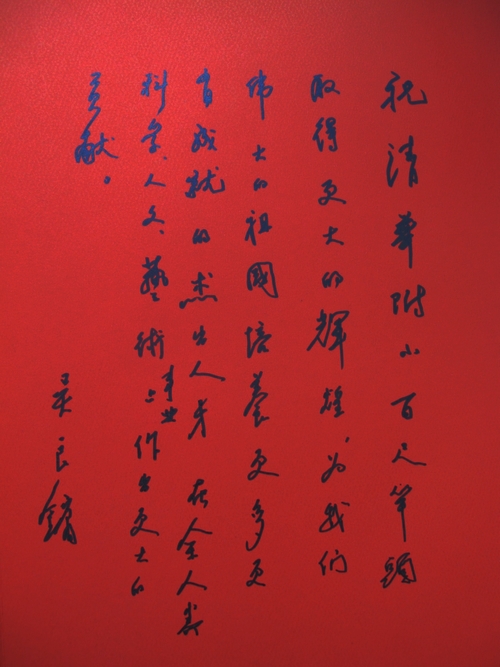 祝清華附小百尺竿頭
取得更大的輝煌，为我们
伟大的祖國培養更多更
有成就的杰出人才 在全人类
科学、人文、藝術事业上作出更大的
贡献。
吴良镛